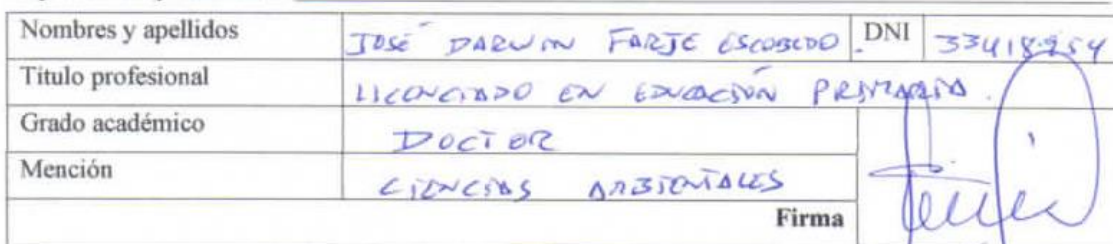 Nombres y apellidos JOSÉ DARWIN FARJE ESCOBEDO. DNI
Título profesional LICENCIADO EN EDUCACIÓN PRIMARIA.
Grado académico DOCTOR
Mención CIENCIAS AMBIENTALES
Firma